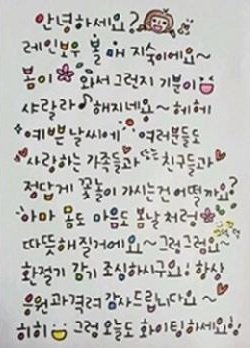 안녕하세요?
레인보우 볼매 지숙이에요~
봄이 와서 그런지 기분이
샤랄라♪해지네요~ 헤헤
예쁜 날씨에 여러분들도
사랑하는 가족들과 친구들과
정답게 꽃놀이 가시는건 어떨까요?
아마 몸도 마음도 봄날처럼
따뜻해질거에요~ 그럼그럼요~
환절기 감기 조심하시구요! 항상
응원과 격려 감사드립니다요~
히히 그럼 오늘도 화이팅하세요!